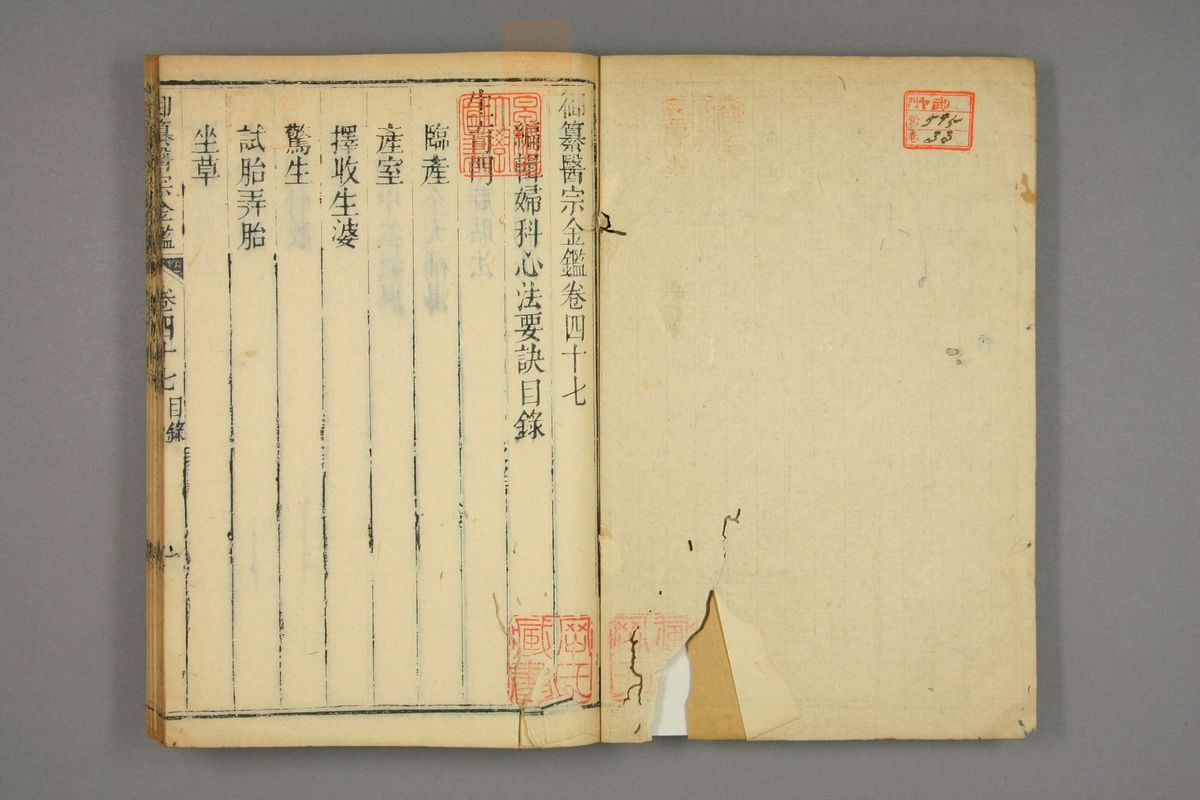 御纂醫宗金鑑卷四十七
編輯婦科心法要訣目錄
生育門
臨產
產室
擇收生婆
驚生
試胎弄胎
坐草
御纂醫宗金鑑 卷四十七 目錄 一
595
33
藏書